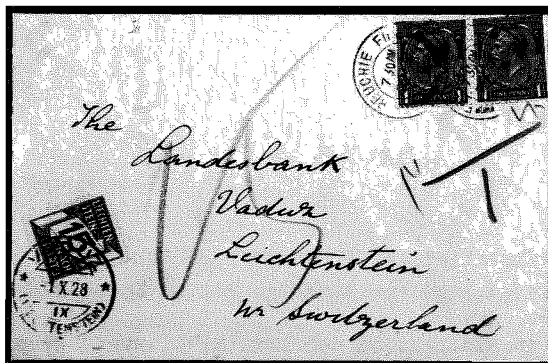 REUCHIE FI
7 30PM
The
Landesbank
Vaduz
Leichtenstein
nr Switzerland
15
T
X.28
IX
TENSTEIN